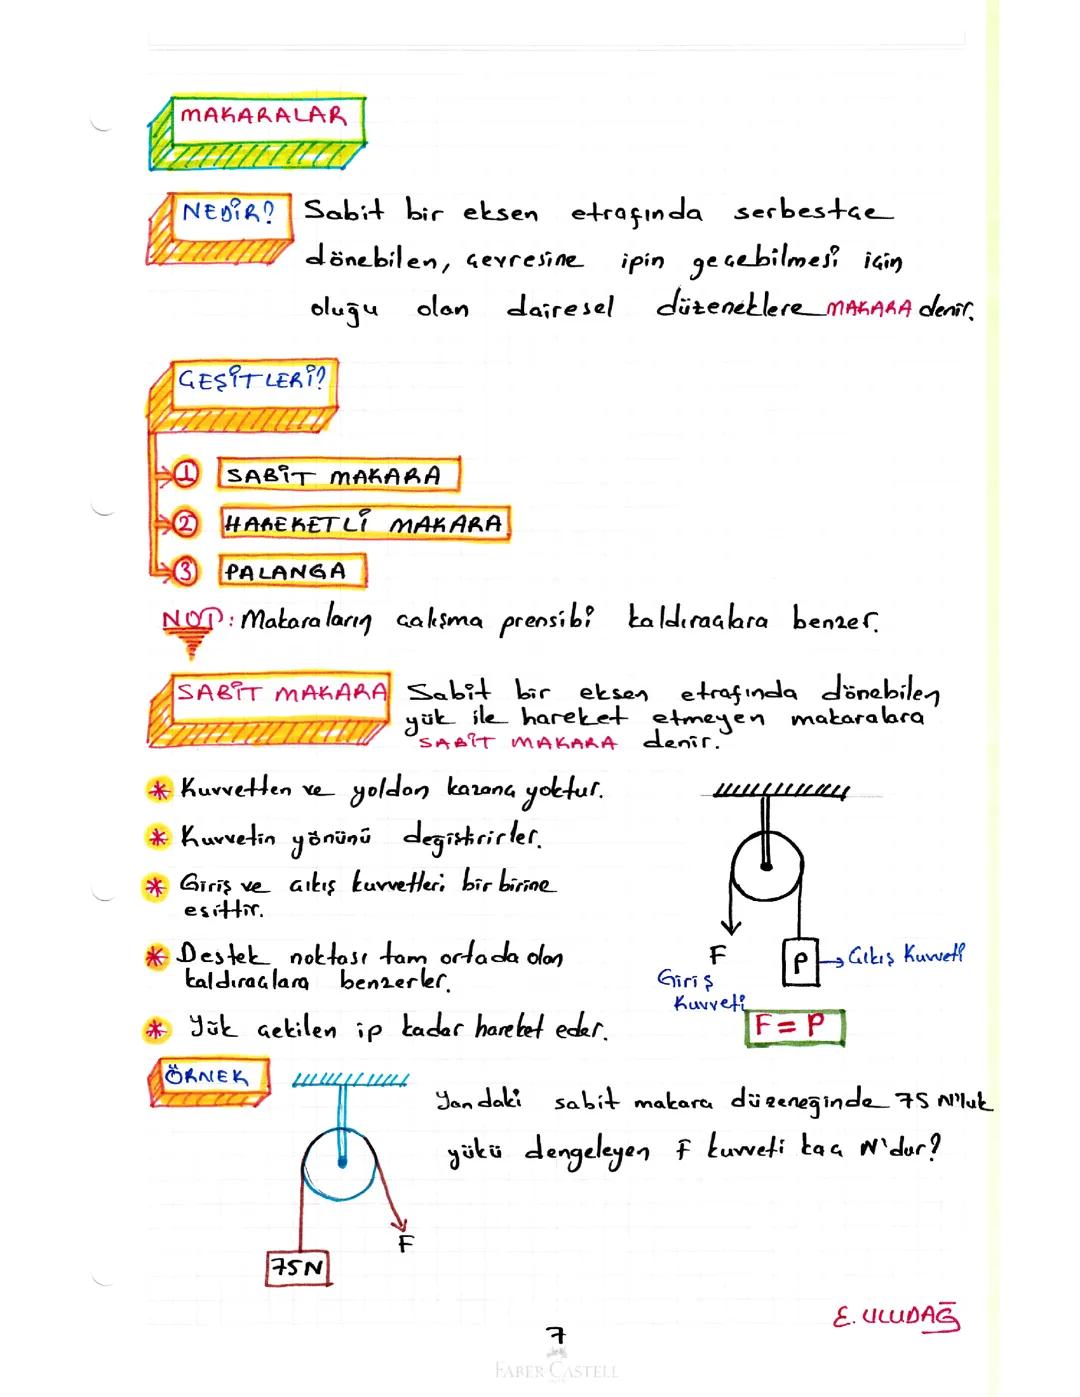 MAKARALAR
NEDİR? Sabit bir eksen etrafında serbestçe
dönebilen, çevresine ipin geçebilmesi için
oluğu olan dairesel düzeneklere MAKARA denir.
ÇEŞİTLERİ?
1 SABİT MAKARA
2 HAREKETLİ MAKARA
3 PALANGA
NOT: Makaraların çalışma prensibi kaldıraçlara benzer.
SABİT MAKARA Sabit bir eksen etrafında dönebilen
yük ile hareket etmeyen makaralara
SABİT MAKARA denir.
* Kuvvetten ve yoldan kazanç yoktur.
* Kuvvetin yönünü değiştirirler.
* Giriş ve çıkış kuvvetleri bir birine
eşittir.
* Destek noktası tam ortada olan
kaldıraçlara benzerler.
* Yük çekilen ip kadar hareket eder.
F
Giriş
Kuvveti
P
Çıkış Kuvveti
F = P
ÖRNEK
Yandaki sabit makara düzeneğinde 75 N'luk
yükü dengeleyen F kuvveti kaç N'dur?
F
75N
E. ULUDAĞ
7
FABER-CASTELL